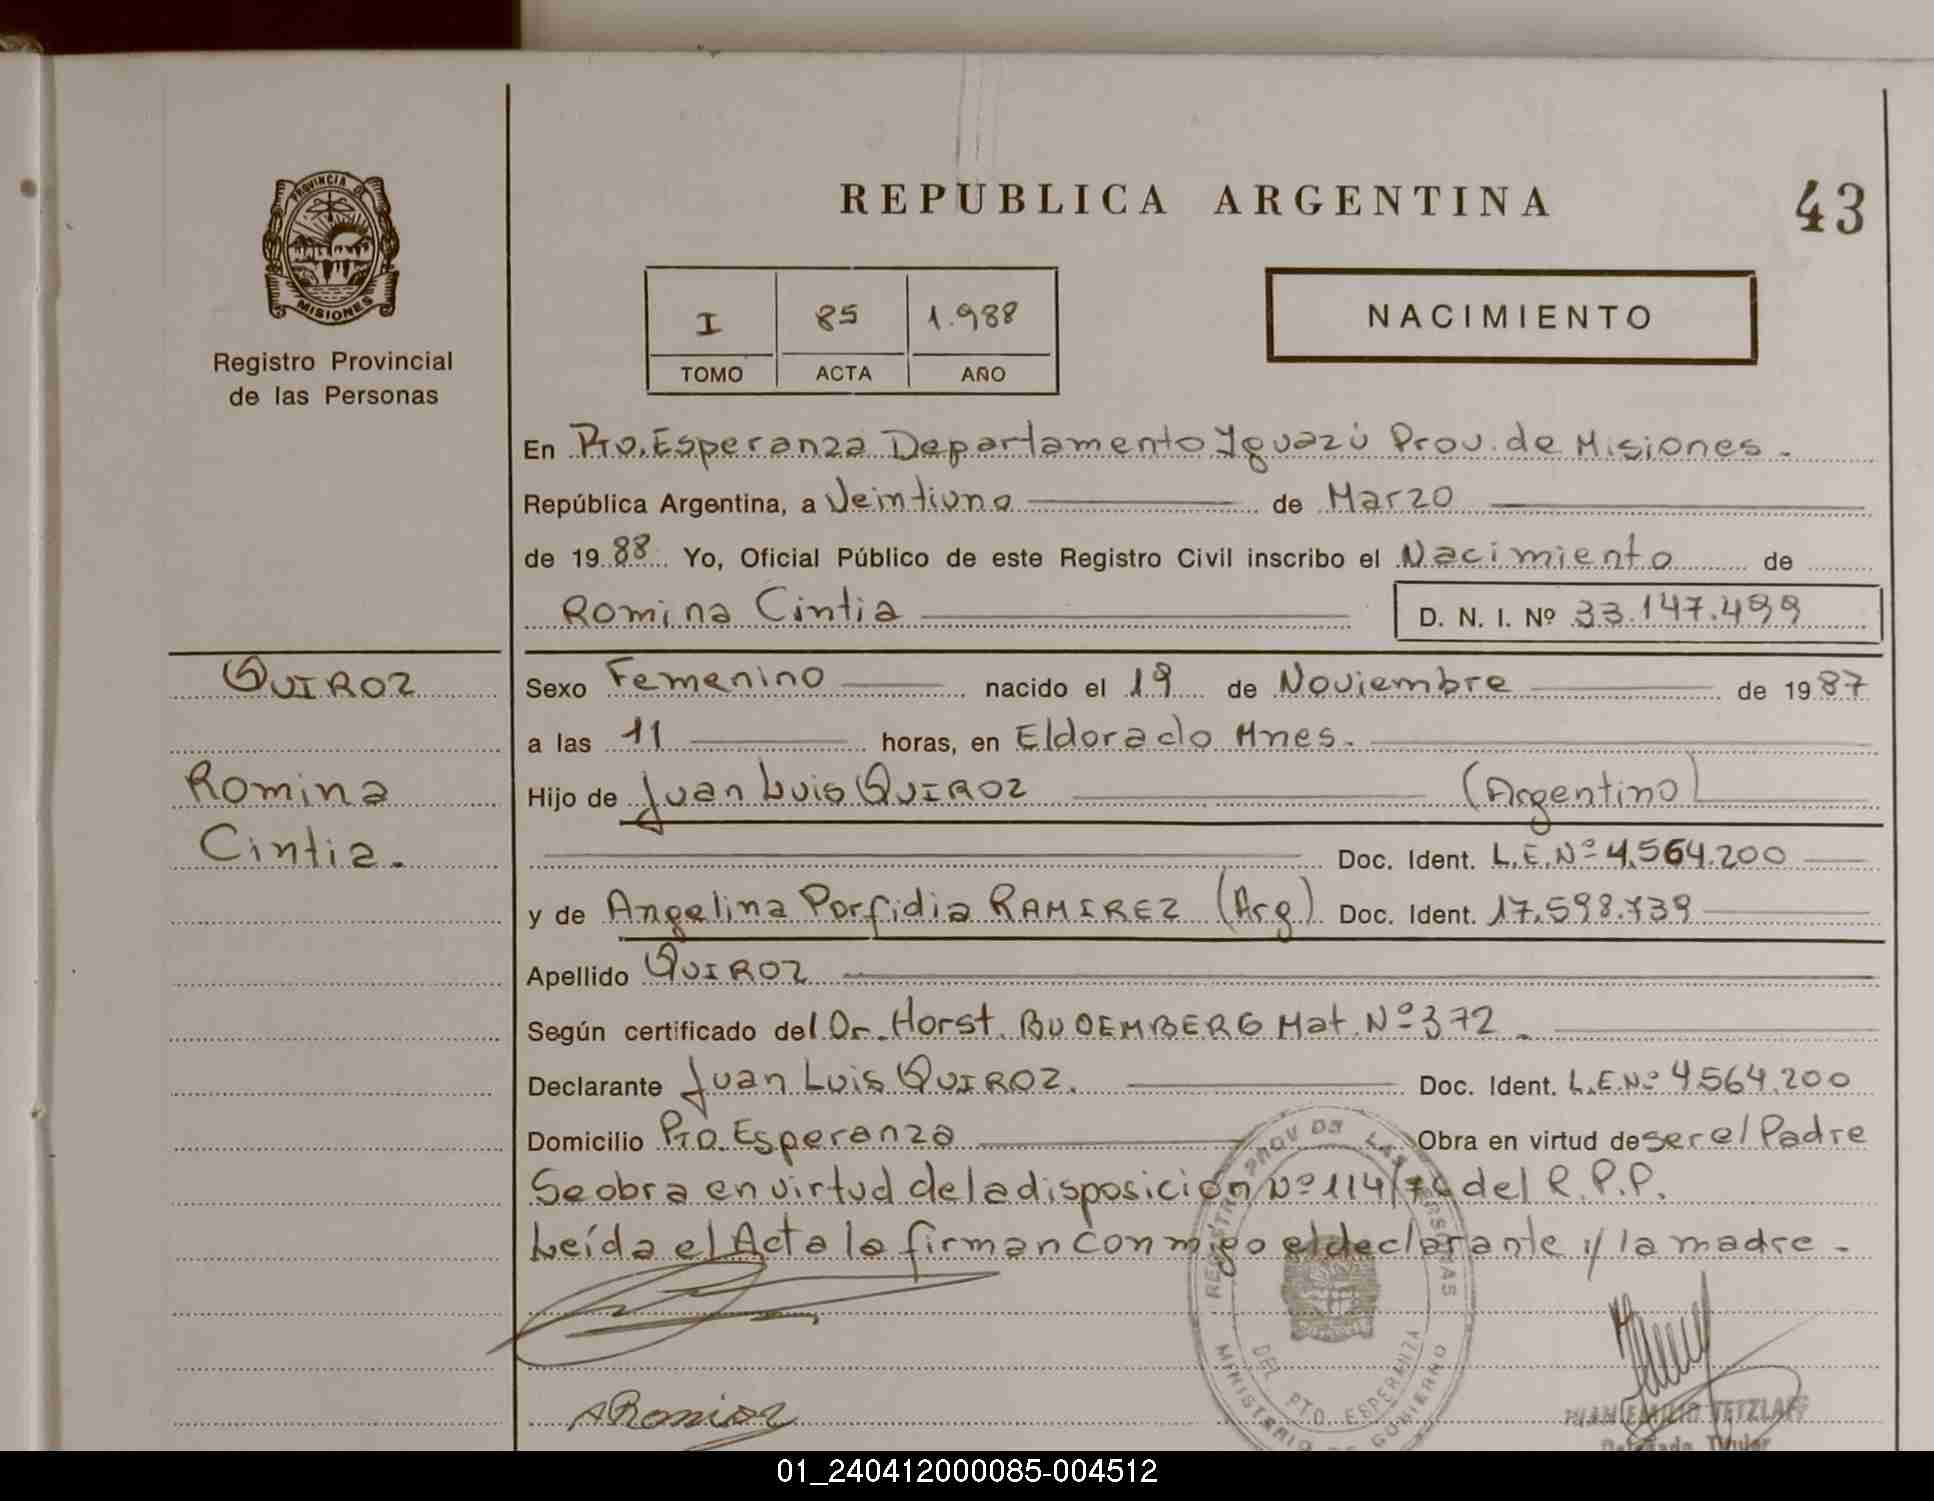 REPUBLICA ARGENTINA
43
PROVINCIA DE
MISIONES
Registro Provincial
de las Personas
I 85 1.988
TOMO ACTA AÑO
NACIMIENTO
En Pto. Esperanza Departamento Iguazú Prov. de Misiones.
República Argentina, a Veintiuno de Marzo
de 19 88 Yo, Oficial Público de este Registro Civil inscribo el Nacimiento de
Romina Cintia D. N. I. Nº 33.147.499
QUIROZ
Romina
Cintia.
Sexo Femenino nacido el 19 de Noviembre de 19 87
a las 11 horas, en Eldorado Mnes.
Hijo de Juan Luis QUIROZ (Argentino)
Doc. Ident. L.E.Nº 4.564.200
y de Angelina Porfidia RAMIREZ (Arg) Doc. Ident. 17.598.739
Apellido QUIROZ
Según certificado del Dr. Horst. BUDEMBERG Mat. Nº 372.
Declarante Juan Luis QUIROZ. Doc. Ident. L.E.Nº 4.564.200
Domicilio Pto. Esperanza Obra en virtud de ser el Padre
Se obra en virtud de la disposición Nº 114/ del R.P.P.
Leída el Acta la firman conmigo el declarante y la madre.
REGISTRO PROV DE LAS PERSONAS
DEL PTO. ESPERANZA
MINISTERIO DE GOBIERNO
JUAN EMILIO TETZLAFF
Delegado Titular
01_240412000085-004512